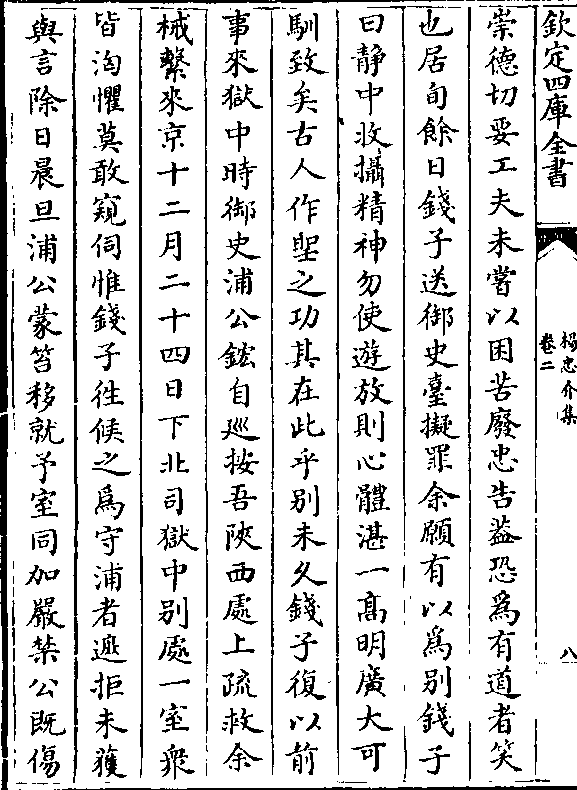 欽定四庫全書
楊忠介集
卷二
八
崇德切要工夫未嘗以困苦廢忠告益恐為有道者笑
也居旬餘日錢子送御史臺擬罪余願有以為別錢子
曰静中收攝精神勿使遊放則心體湛一髙明廣大可
馴致矣古人作聖之功其在此乎别未久錢子復以前
事來獄中時御史浦公鋐自廵按吾陜西處上疏救余
械繫來京十二月二十四日下北司獄中别處一室衆
皆洶懼莫敢窺伺惟錢子往候之為守浦者遮拒未獲
與言除日晨旦浦公蒙笞移就予室同加嚴禁公既傷